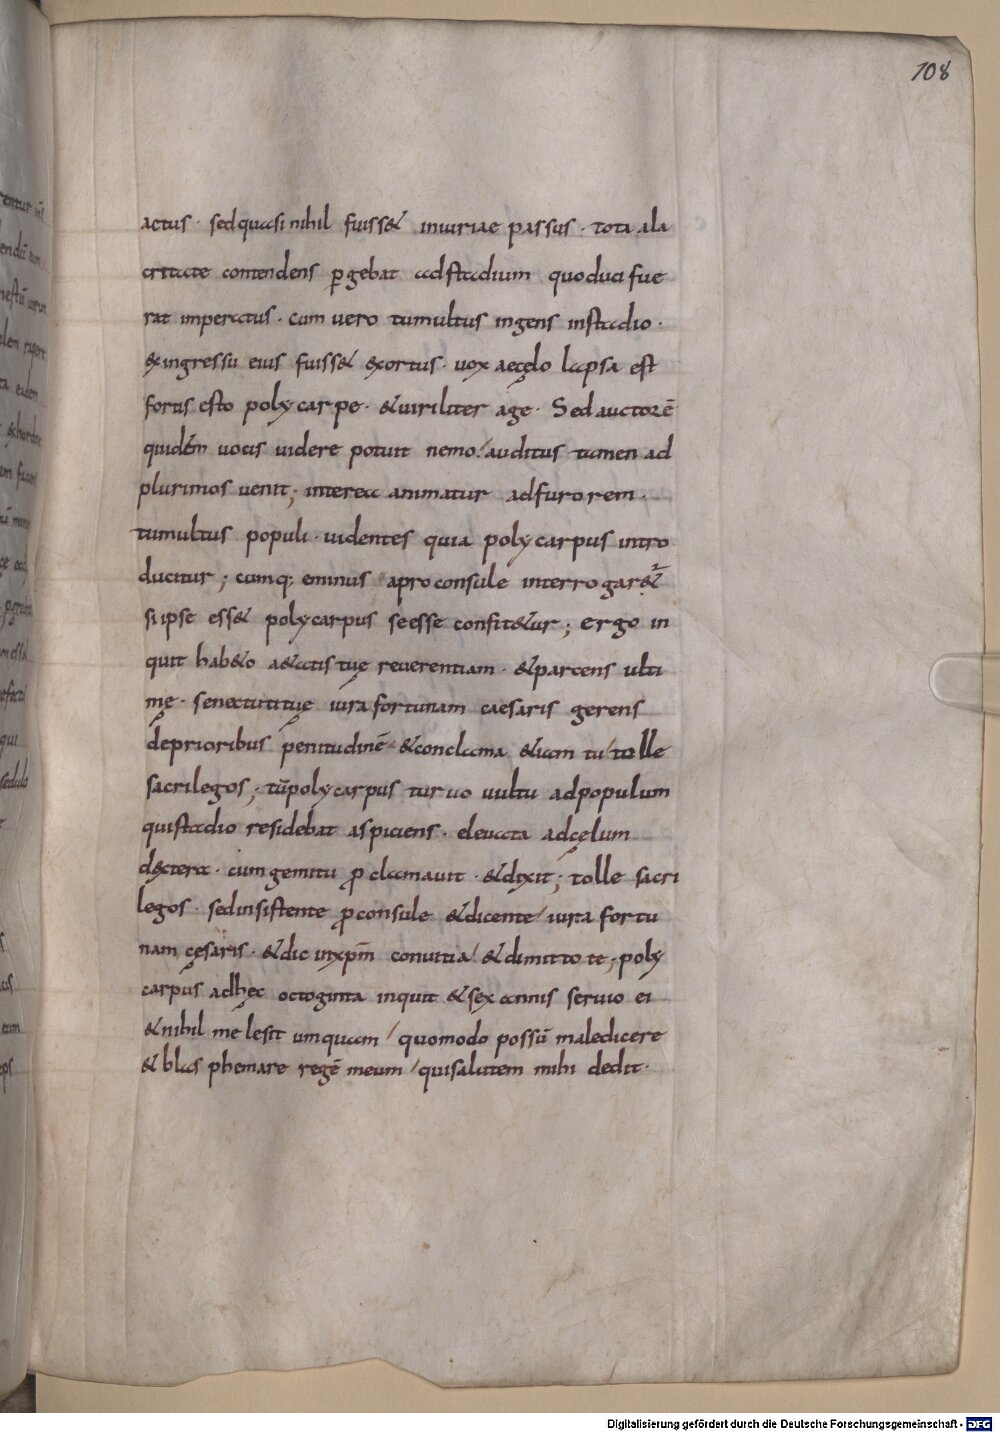 108
actus · sed quasi nihil fuiss& iniuriae passus · tota ala
critate contendens ꝑgebat ad stadium quo duci fue
rat imperatus · cum uero tumultus ingens instadio ·
exingressu eius fuiss& exortus · uox aecęlo lapsa est
fortis esto polycarpe · &uiriliter age · Sed auctorē
quidem uocis uidere potuit nemo / auditus tamen ad
plurimos uenit ; interea animatur adfurorem ·
tumultus populi · uidentes quia polycarpus intro
ducitur ; cumq; eminus aproconsule interrogar&
si ipse ess& polycarpus seesse confit&ur ; ergo in
quit hab&o a&atis tuę reuerentiam · &parcens ulti
mę · senectuti tuę iura fortunam caesaris gerens
deprioribus penitudinē &conclama &iam tu / tolle
sacrilegos ; tū polycarpus turuo uultu adpopulum
quistadio residebat aspiciens · eleuata adcęlum
dextera · cum gemitu ꝓclamauit · &dixit ; tolle sacri
legos · sedinsistente ꝓconsule &dicente / iura fortu
nam cęsaris · &dic inxpm̄ conuitia / &dimitto te ; poly
carpus adhęc octoginta inquit &sex annis seruio ei
&nihil me lesit umquam / quomodo possū maledicere
& blasphemare regē meum / quisalutem mihi dedit ·
Digitalisierung gefördert durch die Deutsche Forschungsgemeinschaft - DFG